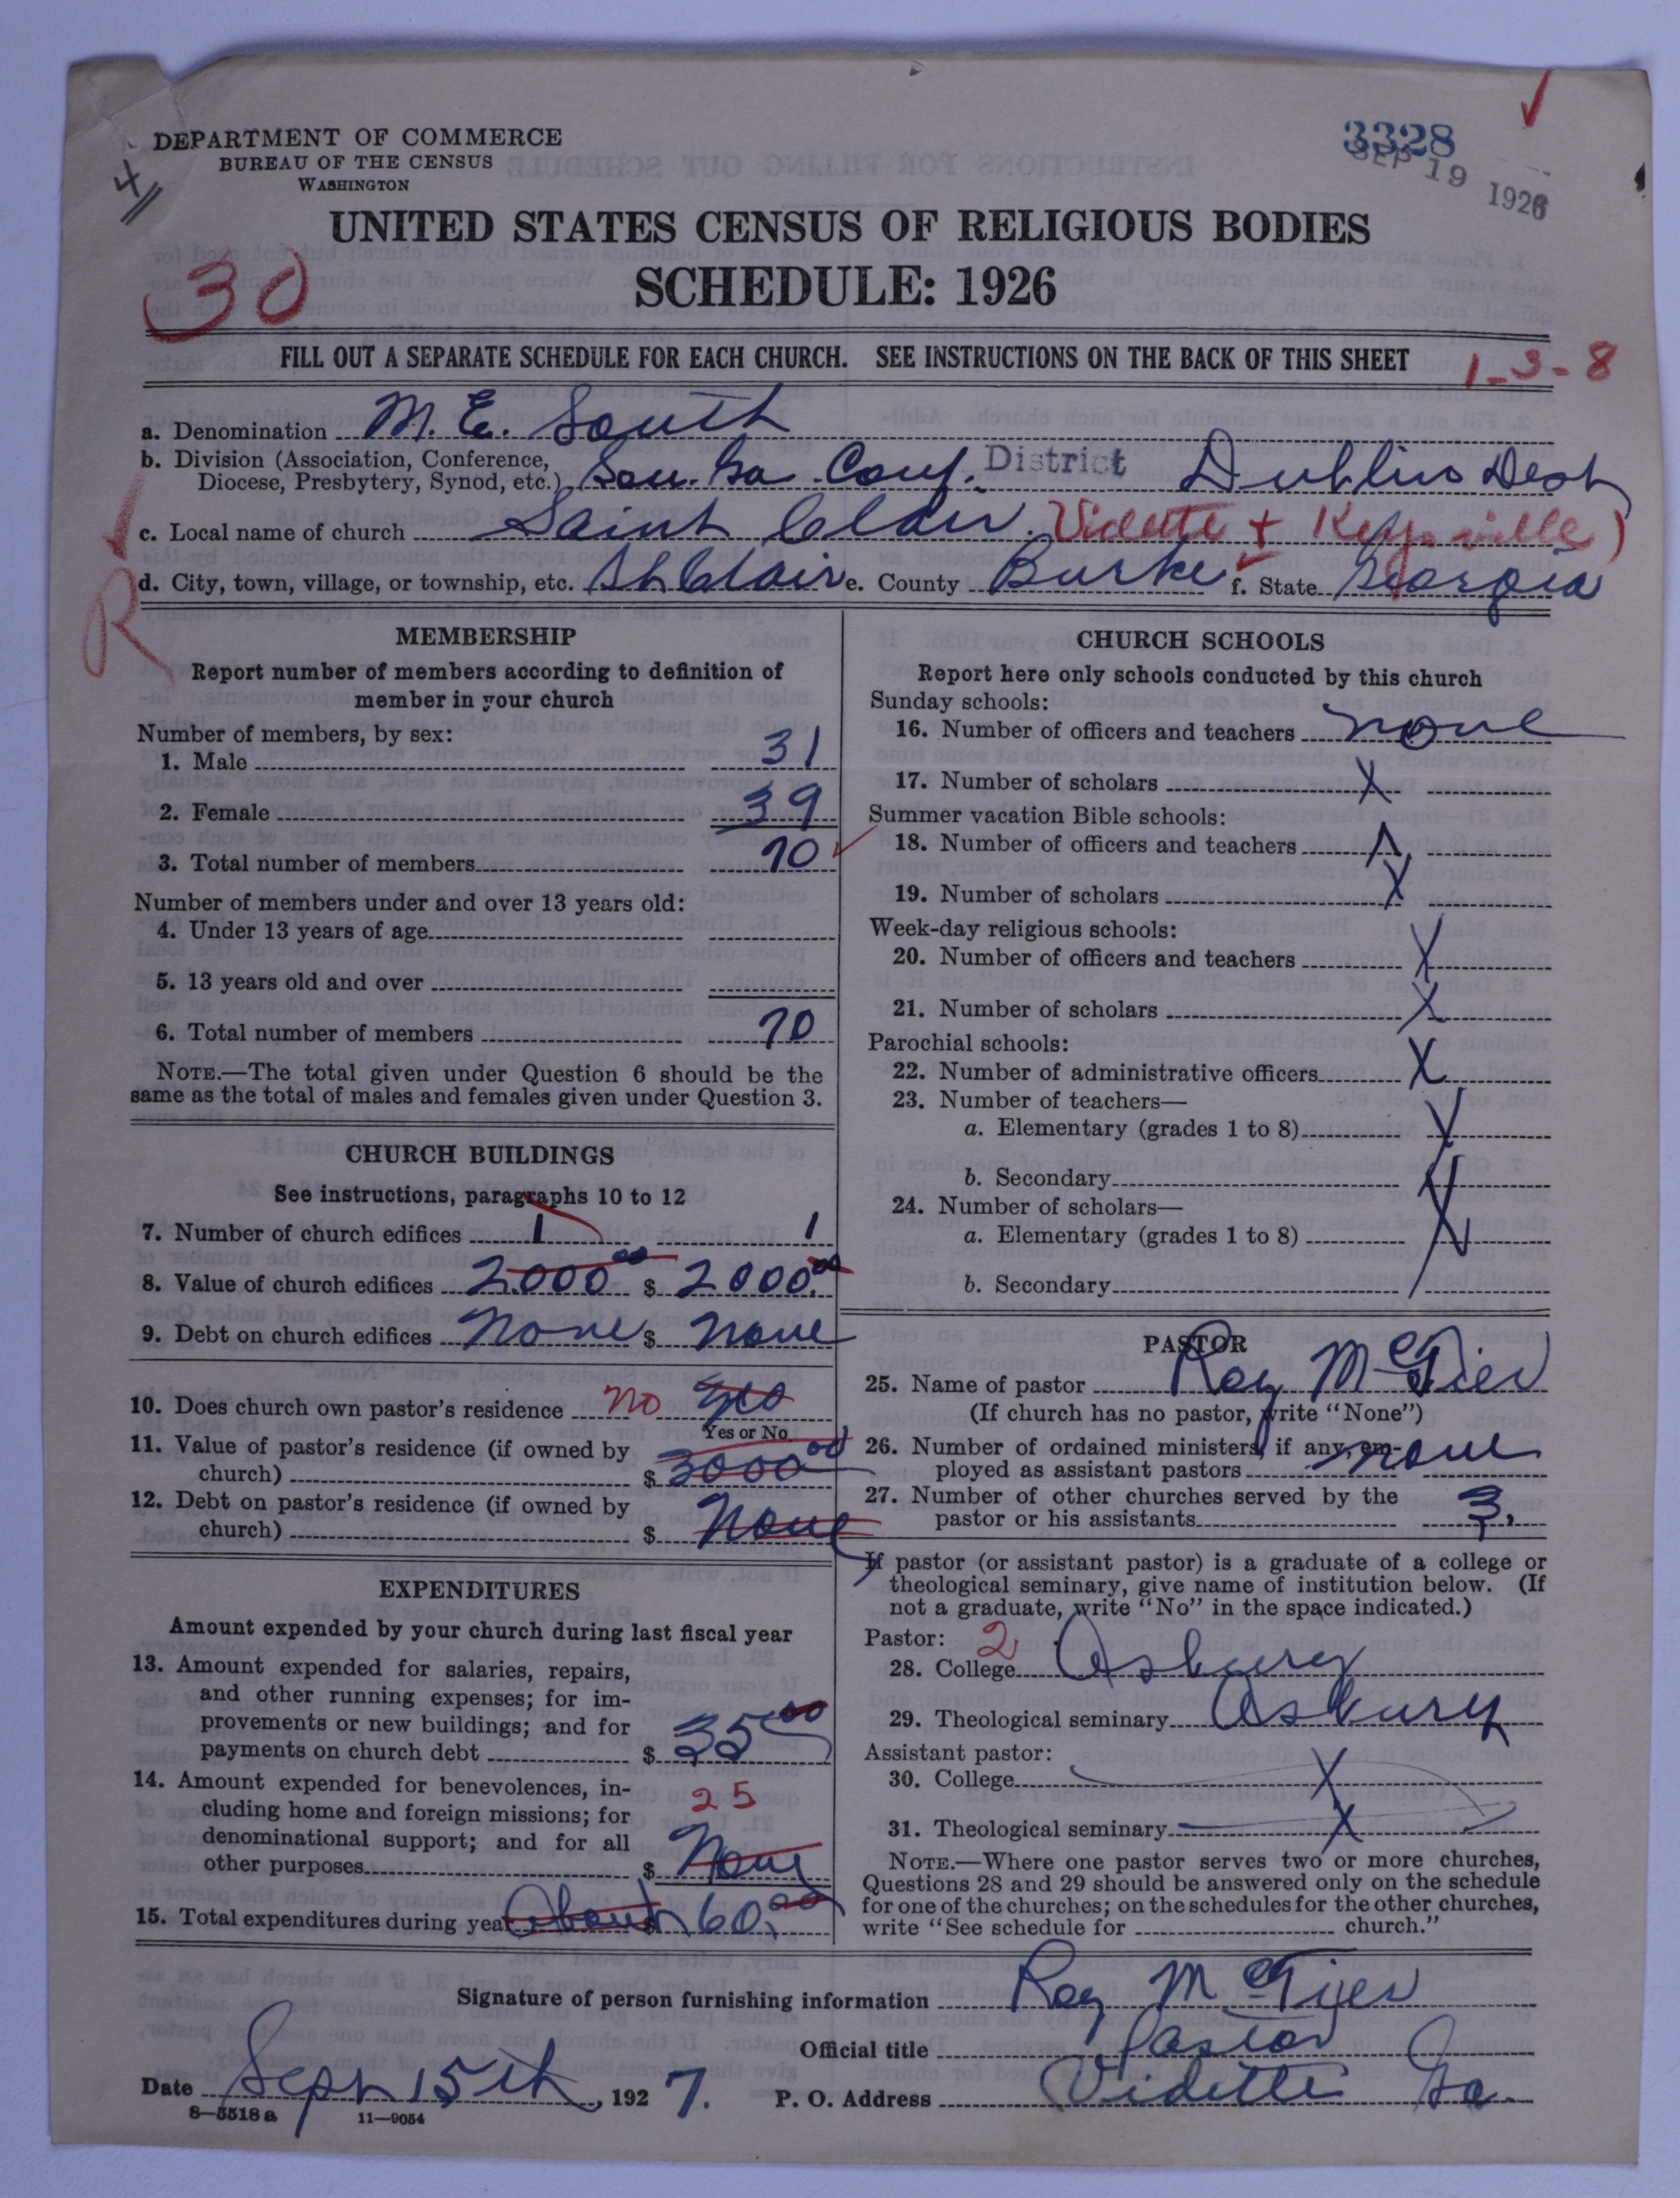 DEPARTMENT OF COMMERCE
BUREAU OF THE CENSUS
WASHINGTON
4
3328
SEP 19 1926
UNITED STATES CENSUS OF RELIGIOUS BODIES
SCHEDULE: 1926
30
FILL OUT A SEPARATE SCHEDULE FOR EACH CHURCH. SEE INSTRUCTIONS ON THE BACK OF THIS SHEET
1-3-8
a. Denomination M. E. South
b. Division (Association, Conference, Diocese, Presbytery, Synod, etc.) Sou. Ga. Conf. District Dublin Dest
c. Local name of church Saint Clair. Vidette + Keysville)
d. City, town, village, or township, etc. St Clair e. County Burke f. State Georgia
R
MEMBERSHIP
Report number of members according to definition of
member in your church
Number of members, by sex:
1. Male 31
2. Female 39
3. Total number of members 70
Number of members under and over 13 years old:
4. Under 13 years of age
5. 13 years old and over
6. Total number of members 70
NOTE.—The total given under Question 6 should be the
same as the total of males and females given under Question 3.
CHURCH BUILDINGS
See instructions, paragraphs 10 to 12
7. Number of church edifices 1 1
8. Value of church edifices 2000.00 $ 2000.00
9. Debt on church edifices None $ None
10. Does church own pastor's residence No Yes
Yes or No
11. Value of pastor's residence (if owned by
church) $ 3000.00
12. Debt on pastor's residence (if owned by
church) $ None
EXPENDITURES
Amount expended by your church during last fiscal year
13. Amount expended for salaries, repairs,
and other running expenses; for im-
provements or new buildings; and for
payments on church debt $ 35.00
14. Amount expended for benevolences, in-
cluding home and foreign missions; for
denominational support; and for all
other purposes $ 25 None
15. Total expenditures during year About $ 60.00
CHURCH SCHOOLS
Report here only schools conducted by this church
Sunday schools:
16. Number of officers and teachers none
17. Number of scholars X
Summer vacation Bible schools:
18. Number of officers and teachers X
19. Number of scholars X
Week-day religious schools:
20. Number of officers and teachers X
21. Number of scholars X
Parochial schools:
22. Number of administrative officers X
23. Number of teachers—
a. Elementary (grades 1 to 8) X
b. Secondary X
24. Number of scholars—
a. Elementary (grades 1 to 8) X
b. Secondary
PASTOR
25. Name of pastor Roy McTier
(If church has no pastor, write "None")
26. Number of ordained ministers, if any, em-
ployed as assistant pastors none
27. Number of other churches served by the
pastor or his assistants 3.
If pastor (or assistant pastor) is a graduate of a college or
theological seminary, give name of institution below. (If
not a graduate, write "No" in the space indicated.)
Pastor: 2
28. College Asbury
29. Theological seminary Asbury
Assistant pastor:
30. College X
31. Theological seminary X
NOTE.—Where one pastor serves two or more churches,
Questions 28 and 29 should be answered only on the schedule
for one of the churches; on the schedules for the other churches,
write "See schedule for church."
Signature of person furnishing information Roy McTier
Official title Pastor
Date Sept 15th, 1927. P. O. Address Vidette Ga.
8-5518a 11-9054